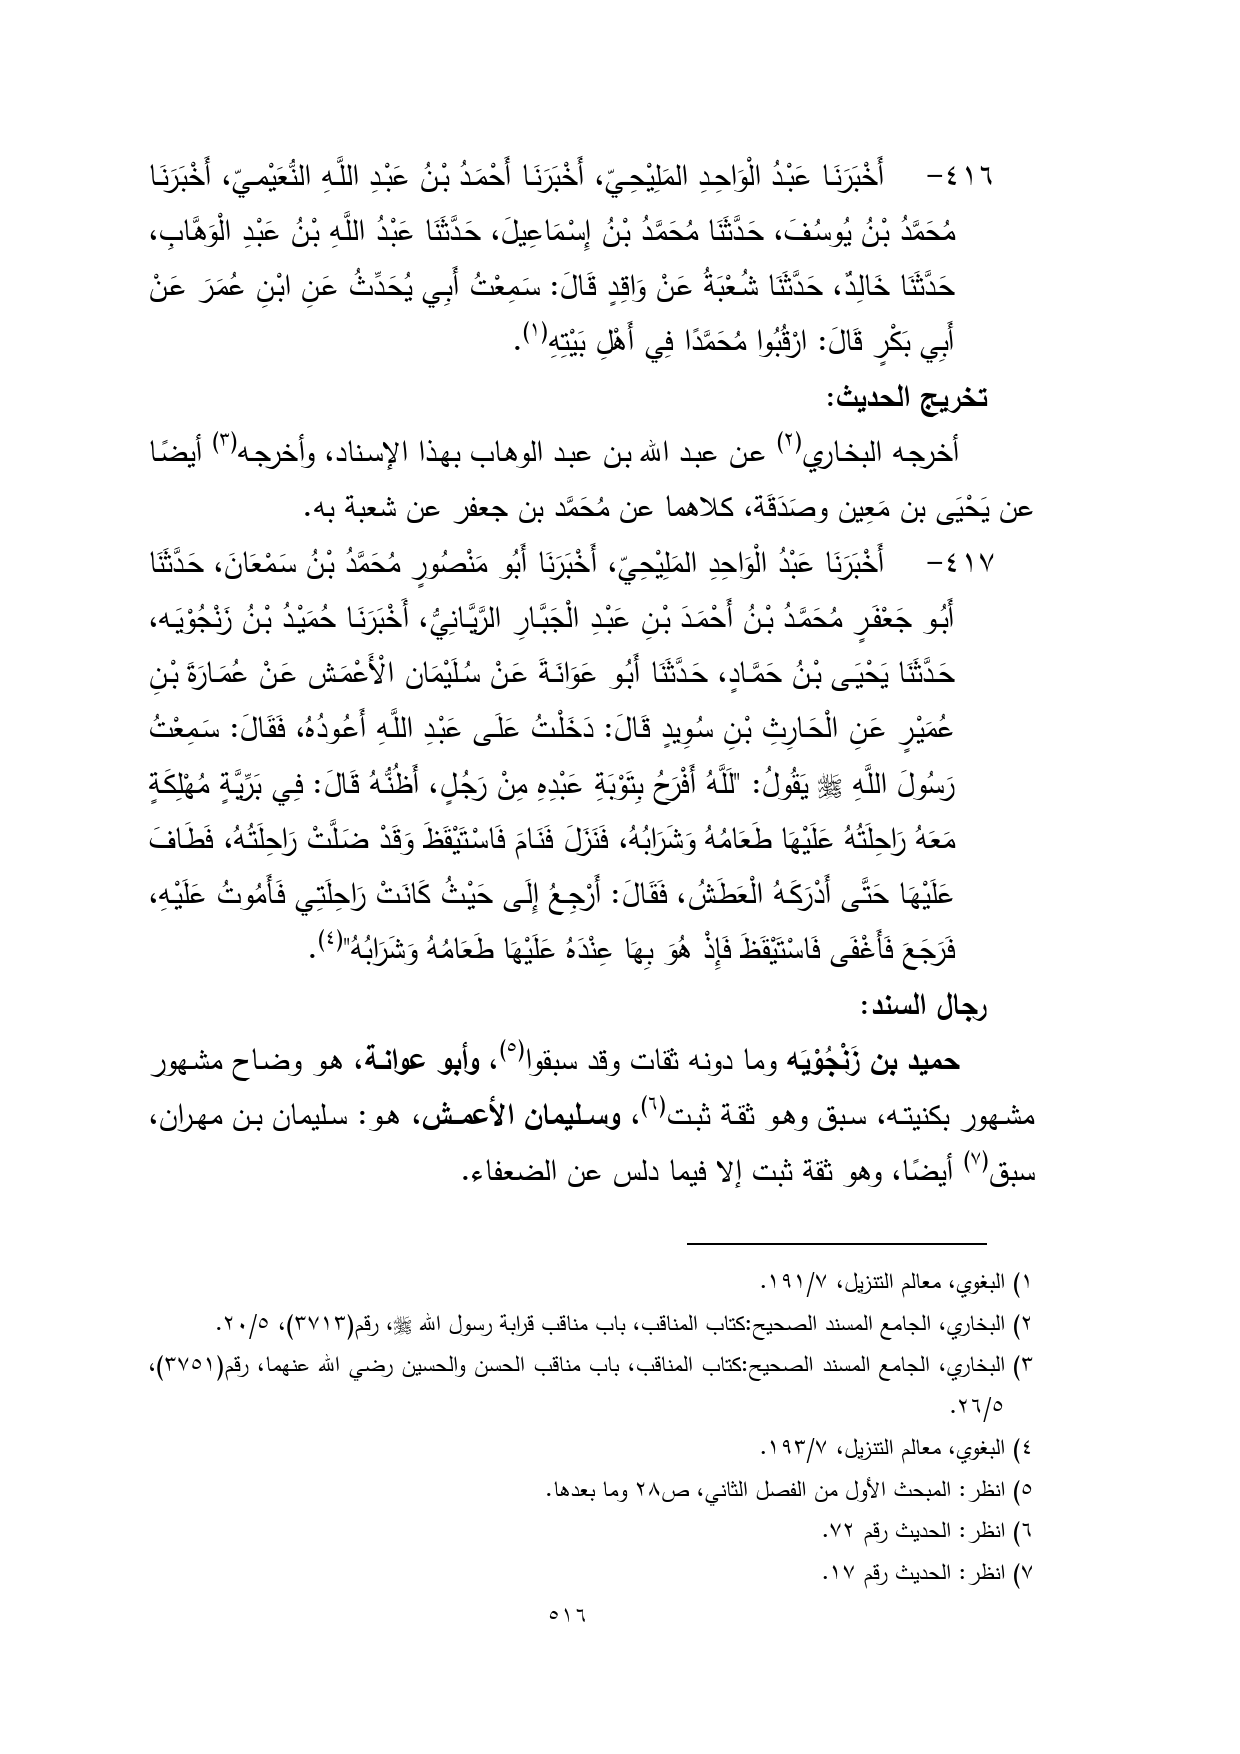 ٤١٦- أَخْبَرَنَا عَبْدُ الْوَاحِدِ المَلِيْحِيّ، أَخْبَرَنَا أَحْمَدُ بْنُ عَبْدِ اللَّهِ النُّعَيْمِيّ، أَخْبَرَنَا
مُحَمَّدُ بْنُ يُوسُفَ، حَدَّثَنَا مُحَمَّدُ بْنُ إِسْمَاعِيلَ، حَدَّثَنَا عَبْدُ اللَّهِ بْنُ عَبْدِ الْوَهَّابِ،
حَدَّثَنَا خَالِدٌ، حَدَّثَنَا شُعْبَةُ عَنْ وَاقِدٍ قَالَ: سَمِعْتُ أَبِي يُحَدِّثُ عَنِ ابْنِ عُمَرَ عَنْ
أَبِي بَكْرٍ قَالَ: ارْقُبُوا مُحَمَّدًا فِي أَهْلِ بَيْتِهِ(١).
تخريج الحديث:
أخرجه البخاري(٢) عن عبد الله بن عبد الوهاب بهذا الإسناد، وأخرجه(٣) أيضًا
عن يَحْيَى بن مَعِين وصَدَقَة، كلاهما عن مُحَمَّد بن جعفر عن شعبة به.
٤١٧- أَخْبَرَنَا عَبْدُ الْوَاحِدِ المَلِيْحِيّ، أَخْبَرَنَا أَبُو مَنْصُورٍ مُحَمَّدُ بْنُ سَمْعَانَ، حَدَّثَنَا
أَبُو جَعْفَرٍ مُحَمَّدُ بْنُ أَحْمَدَ بْنِ عَبْدِ الْجَبَّارِ الرَّيَّانِيُّ، أَخْبَرَنَا حُمَيْدُ بْنُ زَنْجُوْيَه،
حَدَّثَنَا يَحْيَى بْنُ حَمَّادٍ، حَدَّثَنَا أَبُو عَوَانَةَ عَنْ سُلَيْمَان الْأَعْمَش عَنْ عُمَارَةَ بْنِ
عُمَيْرٍ عَنِ الْحَارِثِ بْنِ سُوِيدٍ قَالَ: دَخَلْتُ عَلَى عَبْدِ اللَّهِ أَعُودُهُ، فَقَالَ: سَمِعْتُ
رَسُولَ اللَّهِ ﷺ يَقُولُ: "لَلَّهُ أَفْرَحُ بِتَوْبَةِ عَبْدِهِ مِنْ رَجُلٍ، أَظُنُّهُ قَالَ: فِي بَرِّيَّةٍ مُهْلِكَةٍ
مَعَهُ رَاحِلَتُهُ عَلَيْهَا طَعَامُهُ وَشَرَابُهُ، فَنَزَلَ فَنَامَ فَاسْتَيْقَظَ وَقَدْ ضَلَّتْ رَاحِلَتُهُ، فَطَافَ
عَلَيْهَا حَتَّى أَدْرَكَهُ الْعَطَشُ، فَقَالَ: أَرْجِعُ إِلَى حَيْثُ كَانَتْ رَاحِلَتِي فَأَمُوتُ عَلَيْهِ،
فَرَجَعَ فَأَغْفَى فَاسْتَيْقَظَ فَإِذْ هُوَ بِهَا عِنْدَهُ عَلَيْهَا طَعَامُهُ وَشَرَابُهُ"(٤).
رجال السند:
حميد بن زَنْجُوْيَه وما دونه ثقات وقد سبقوا(٥)، وأبو عوانة، هو وضاح مشهور
مشهور بكنيته، سبق وهو ثقة ثبت(٦)، وسليمان الأعمش، هو: سليمان بن مهران،
سبق(٧) أيضًا، وهو ثقة ثبت إلا فيما دلس عن الضعفاء.
١) البغوي، معالم التنزيل، ١٩١/٧.
٢) البخاري، الجامع المسند الصحيح:كتاب المناقب، باب مناقب قرابة رسول الله ﷺ، رقم(٣٧١٣)، ٢٠/٥.
٣) البخاري، الجامع المسند الصحيح:كتاب المناقب، باب مناقب الحسن والحسين رضي الله عنهما، رقم(٣٧٥١)،
٢٦/٥.
٤) البغوي، معالم التنزيل، ١٩٣/٧.
٥) انظر: المبحث الأول من الفصل الثاني، ص٢٨ وما بعدها.
٦) انظر: الحديث رقم ٧٢.
٧) انظر: الحديث رقم ١٧.
٥١٦